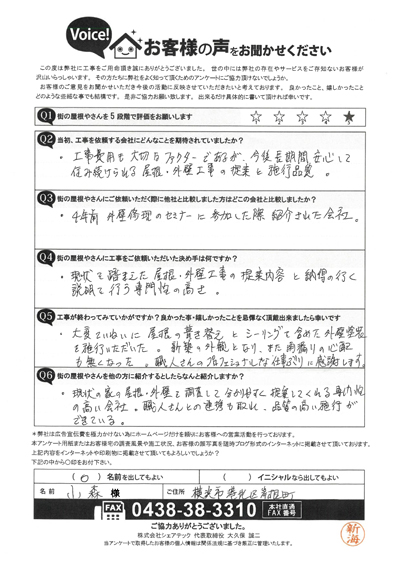 Voice!
お客様の声をお聞かせください
この度は弊社に工事をご用命頂き誠にありがとうございました。世の中には弊社の存在やサービスをご存知ないお客様が
沢山いらっしゃいます。その方たちに弊社をよく知って頂くためのアンケートにご協力頂けないでしょうか。
お客様のご意見をお聞かせいただき今後の活動に反映させていただきたいと考えております。良かったこと、嬉しかったこと
どのような些細な事でも結構です。是非ご協力お願い致します。出来るだけ具体的に書いて頂ければ幸いです。
Q1 街の屋根やさんを5段階で評価をお願いします ☆ ☆ ☆ ☆ ★
Q2 当初、工事を依頼する会社にどんなことを期待されていましたか?
・工事費用も大切なファクターであるが、今後長期間安心して
住み続けられる屋根・外壁工事の提案と施行品質。
Q3 街の屋根やさんにご依頼いただく際に他社と比較しました方はどこの会社と比較しましたか?
・4年前 外壁修理のセミナーに参加した際 紹介された会社。
Q4 街の屋根やさんに工事をご依頼いただいた決め手は何ですか?
・現状を踏まえた屋根・外壁工事の提案内容と納得の行く
説明を行う専門性の高さ。
Q5 工事が終わってみていかがですか?良かった事・嬉しかったことを忌憚なく頂戴出来ましたら幸いです
・大変ていねいに屋根の葺き替えとシーリングを含めた外壁塗装
を施行いただいた。新築の外観となり、また雨漏りの心配
も無くなった。職人さんのプロフェッショナルな仕事ぶりに感謝します。
Q6 街の屋根やさんを他の方に紹介するとしたらなんと紹介しますか?
・現状の家の屋根・外壁を調査して分かりやすく提案してくれる専門性
の高い会社。職人さんとの連携も取れ、品質の高い施行が
できている。
*弊社は広告宣伝費を極力かけない為にホームページだけを頼りにお客様への営業活動を行っております。
本アンケート用紙またはお客様宅の調査風景や施工状況、お客様の顔写真を随時ブログ形式のインターネットに掲載させて頂いております。
上記内容をインターネットや印刷物に掲載させて頂いてもよろしいでしょうか?
下記の中から〇印をお付け下さい。
(〇)名前を出してもよい ( )イニシャルなら出してもよい
名前 小森 様 ご住所 横浜市
FAX 0438-38-3310 本社直通 FAX番号
ご協力ありがとうございました。
株式会社シェアテック 代表取締役 大久保 誠二
当アンケートで取得したお客様の個人情報は関係法規に基づき厳正に管理いたします。
新海